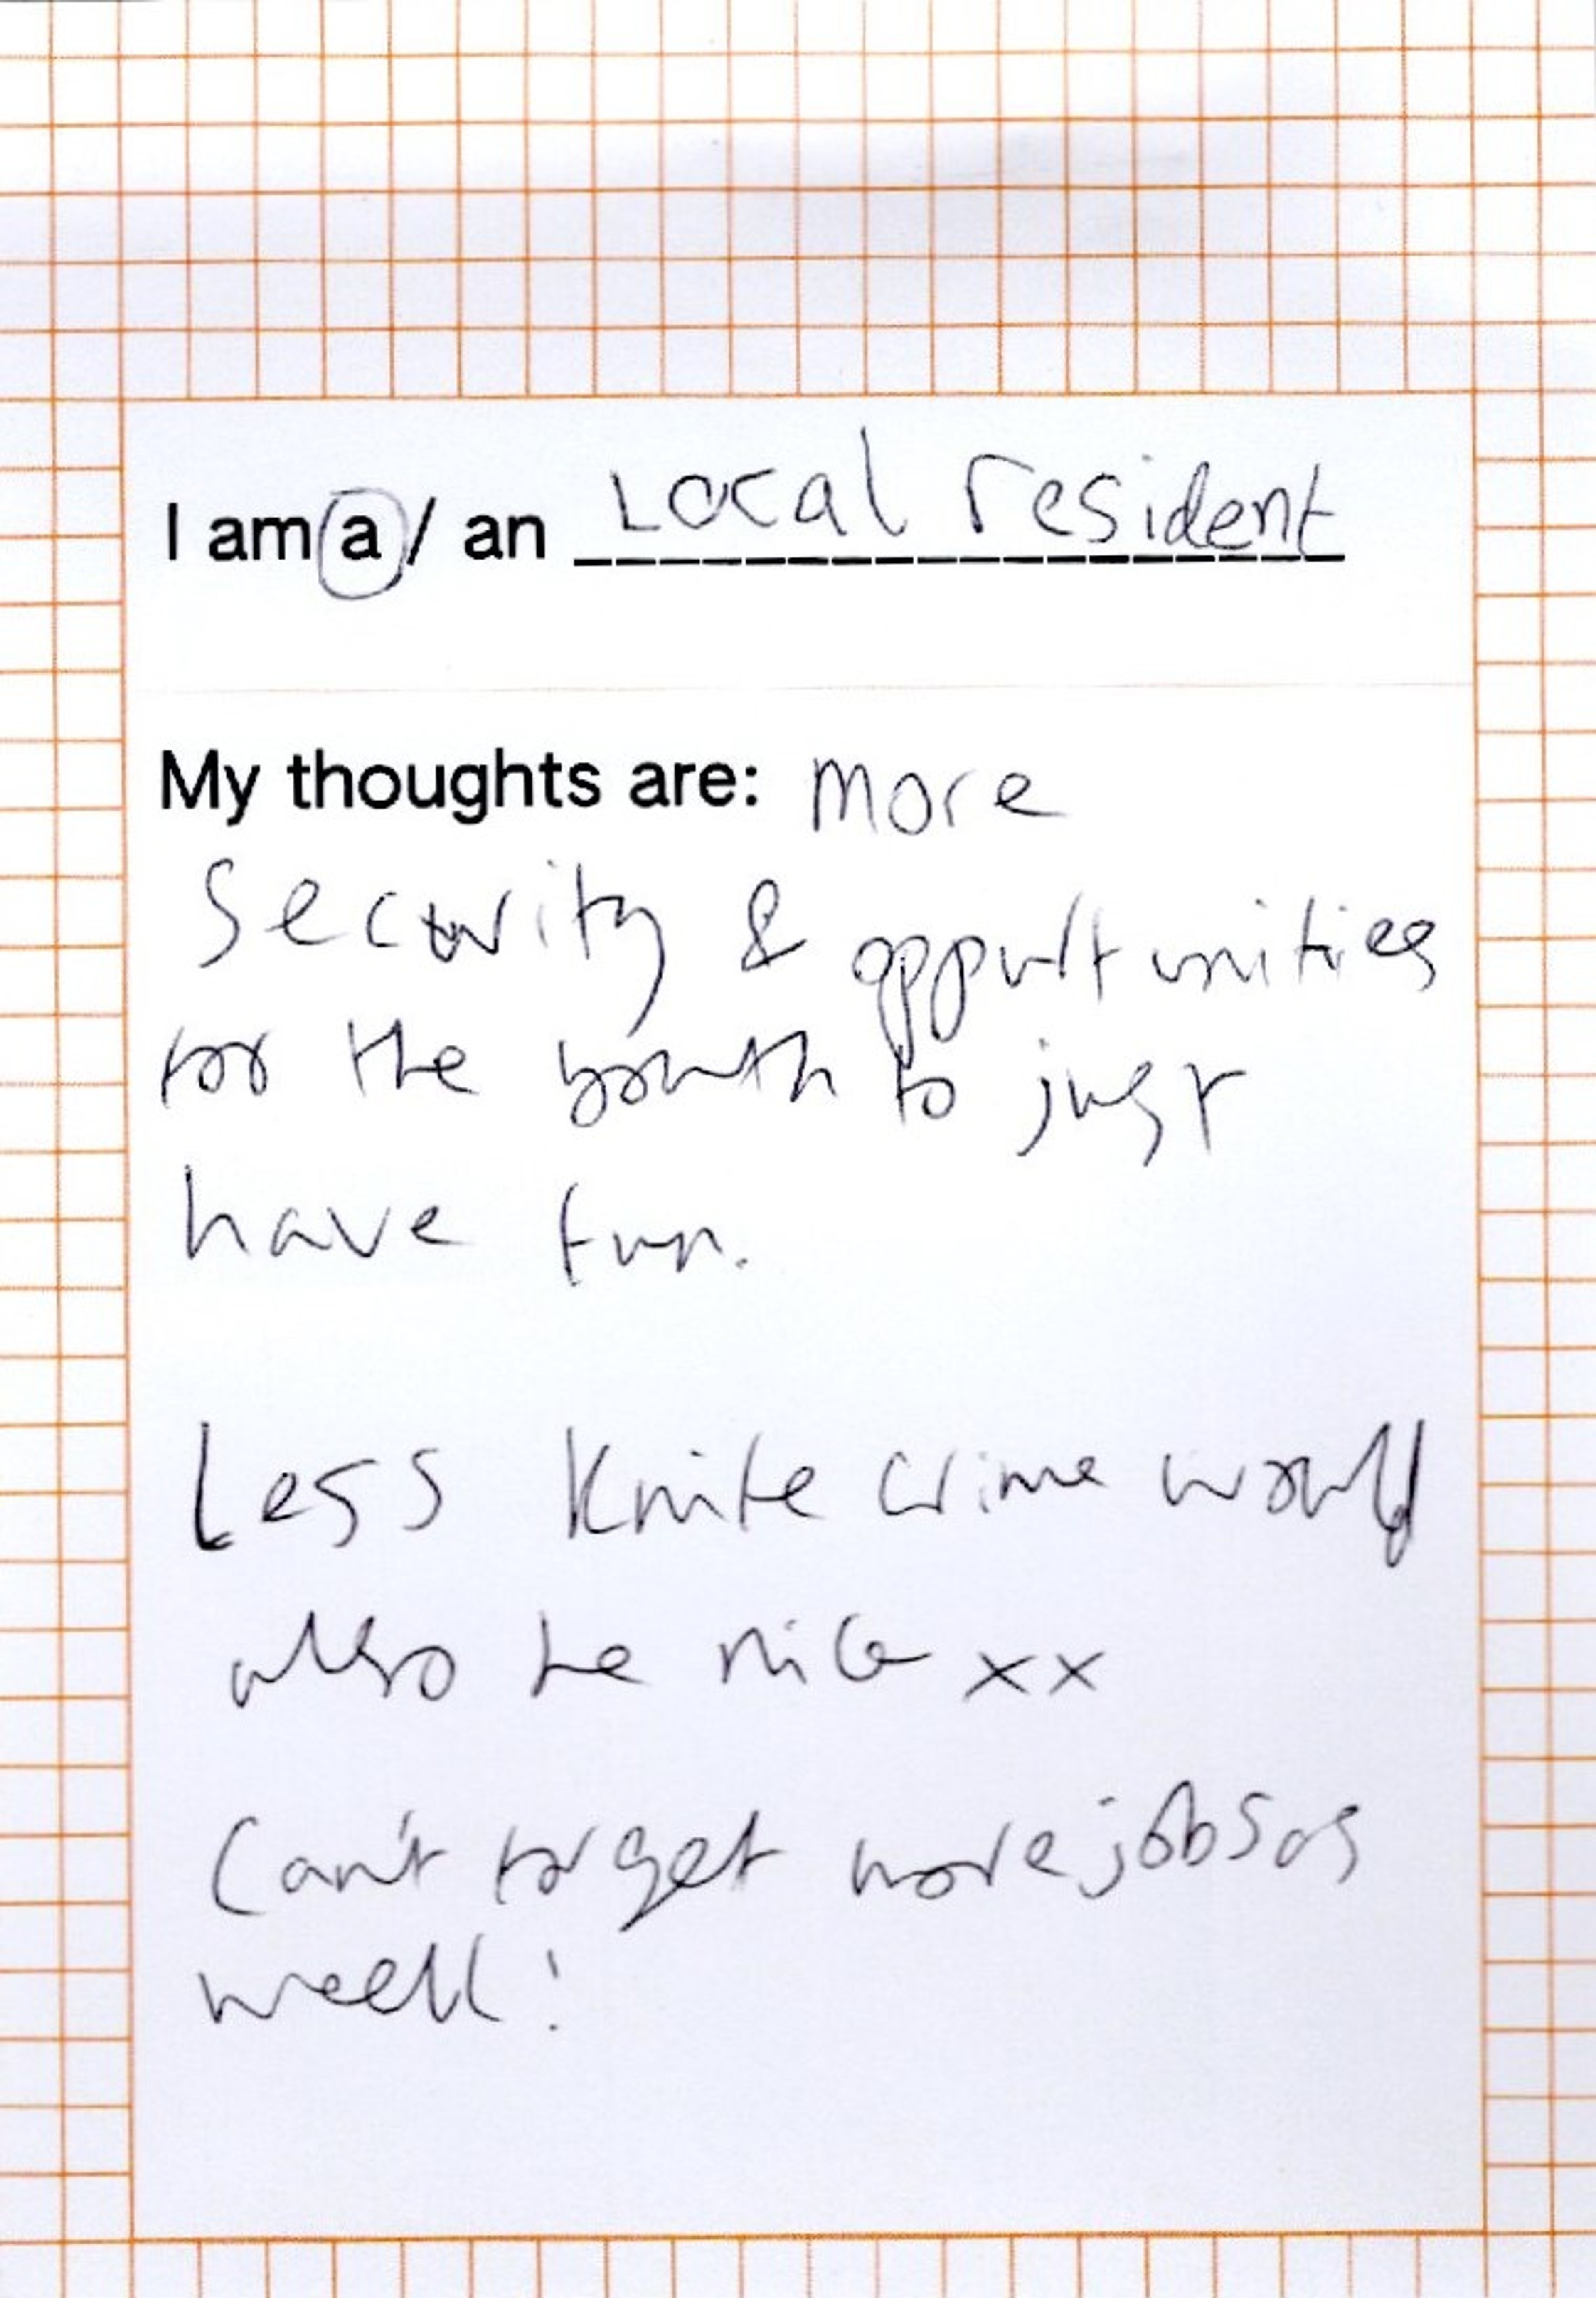 I am a / an Local resident
My thoughts are: More
Security & opportunities
for the youth to just
have fun.
Less Knife crime would
also be nice xx
Can't forget more jobs as
well!